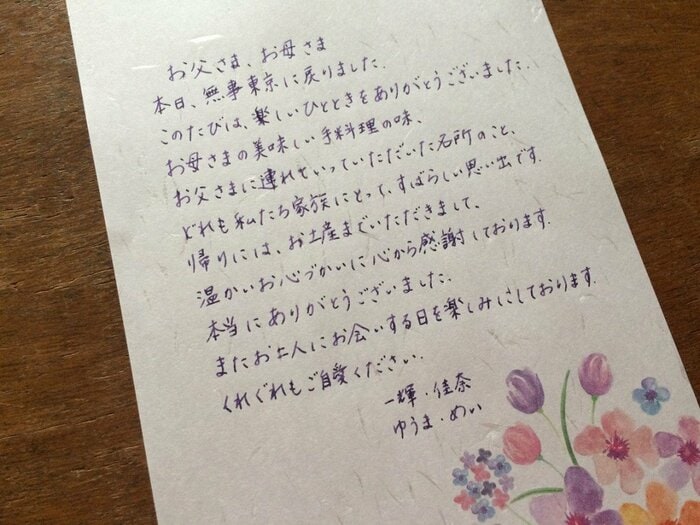 お父さま、お母さま
本日、無事東京に戻りました。
このたびは、楽しいひとときをありがとうございました。
お母さまの美味しい手料理の味、
お父さまに連れていっていただいた名所のこと、
どれも私たち家族にとって、すばらしい思い出です。
帰りには、お土産までいただきまして、
温かいお心づかいに心から感謝しております。
本当にありがとうございました。
またお二人にお会いする日を楽しみにしております。
くれぐれもご自愛ください。
一輝・佳奈
ゆうま・めい